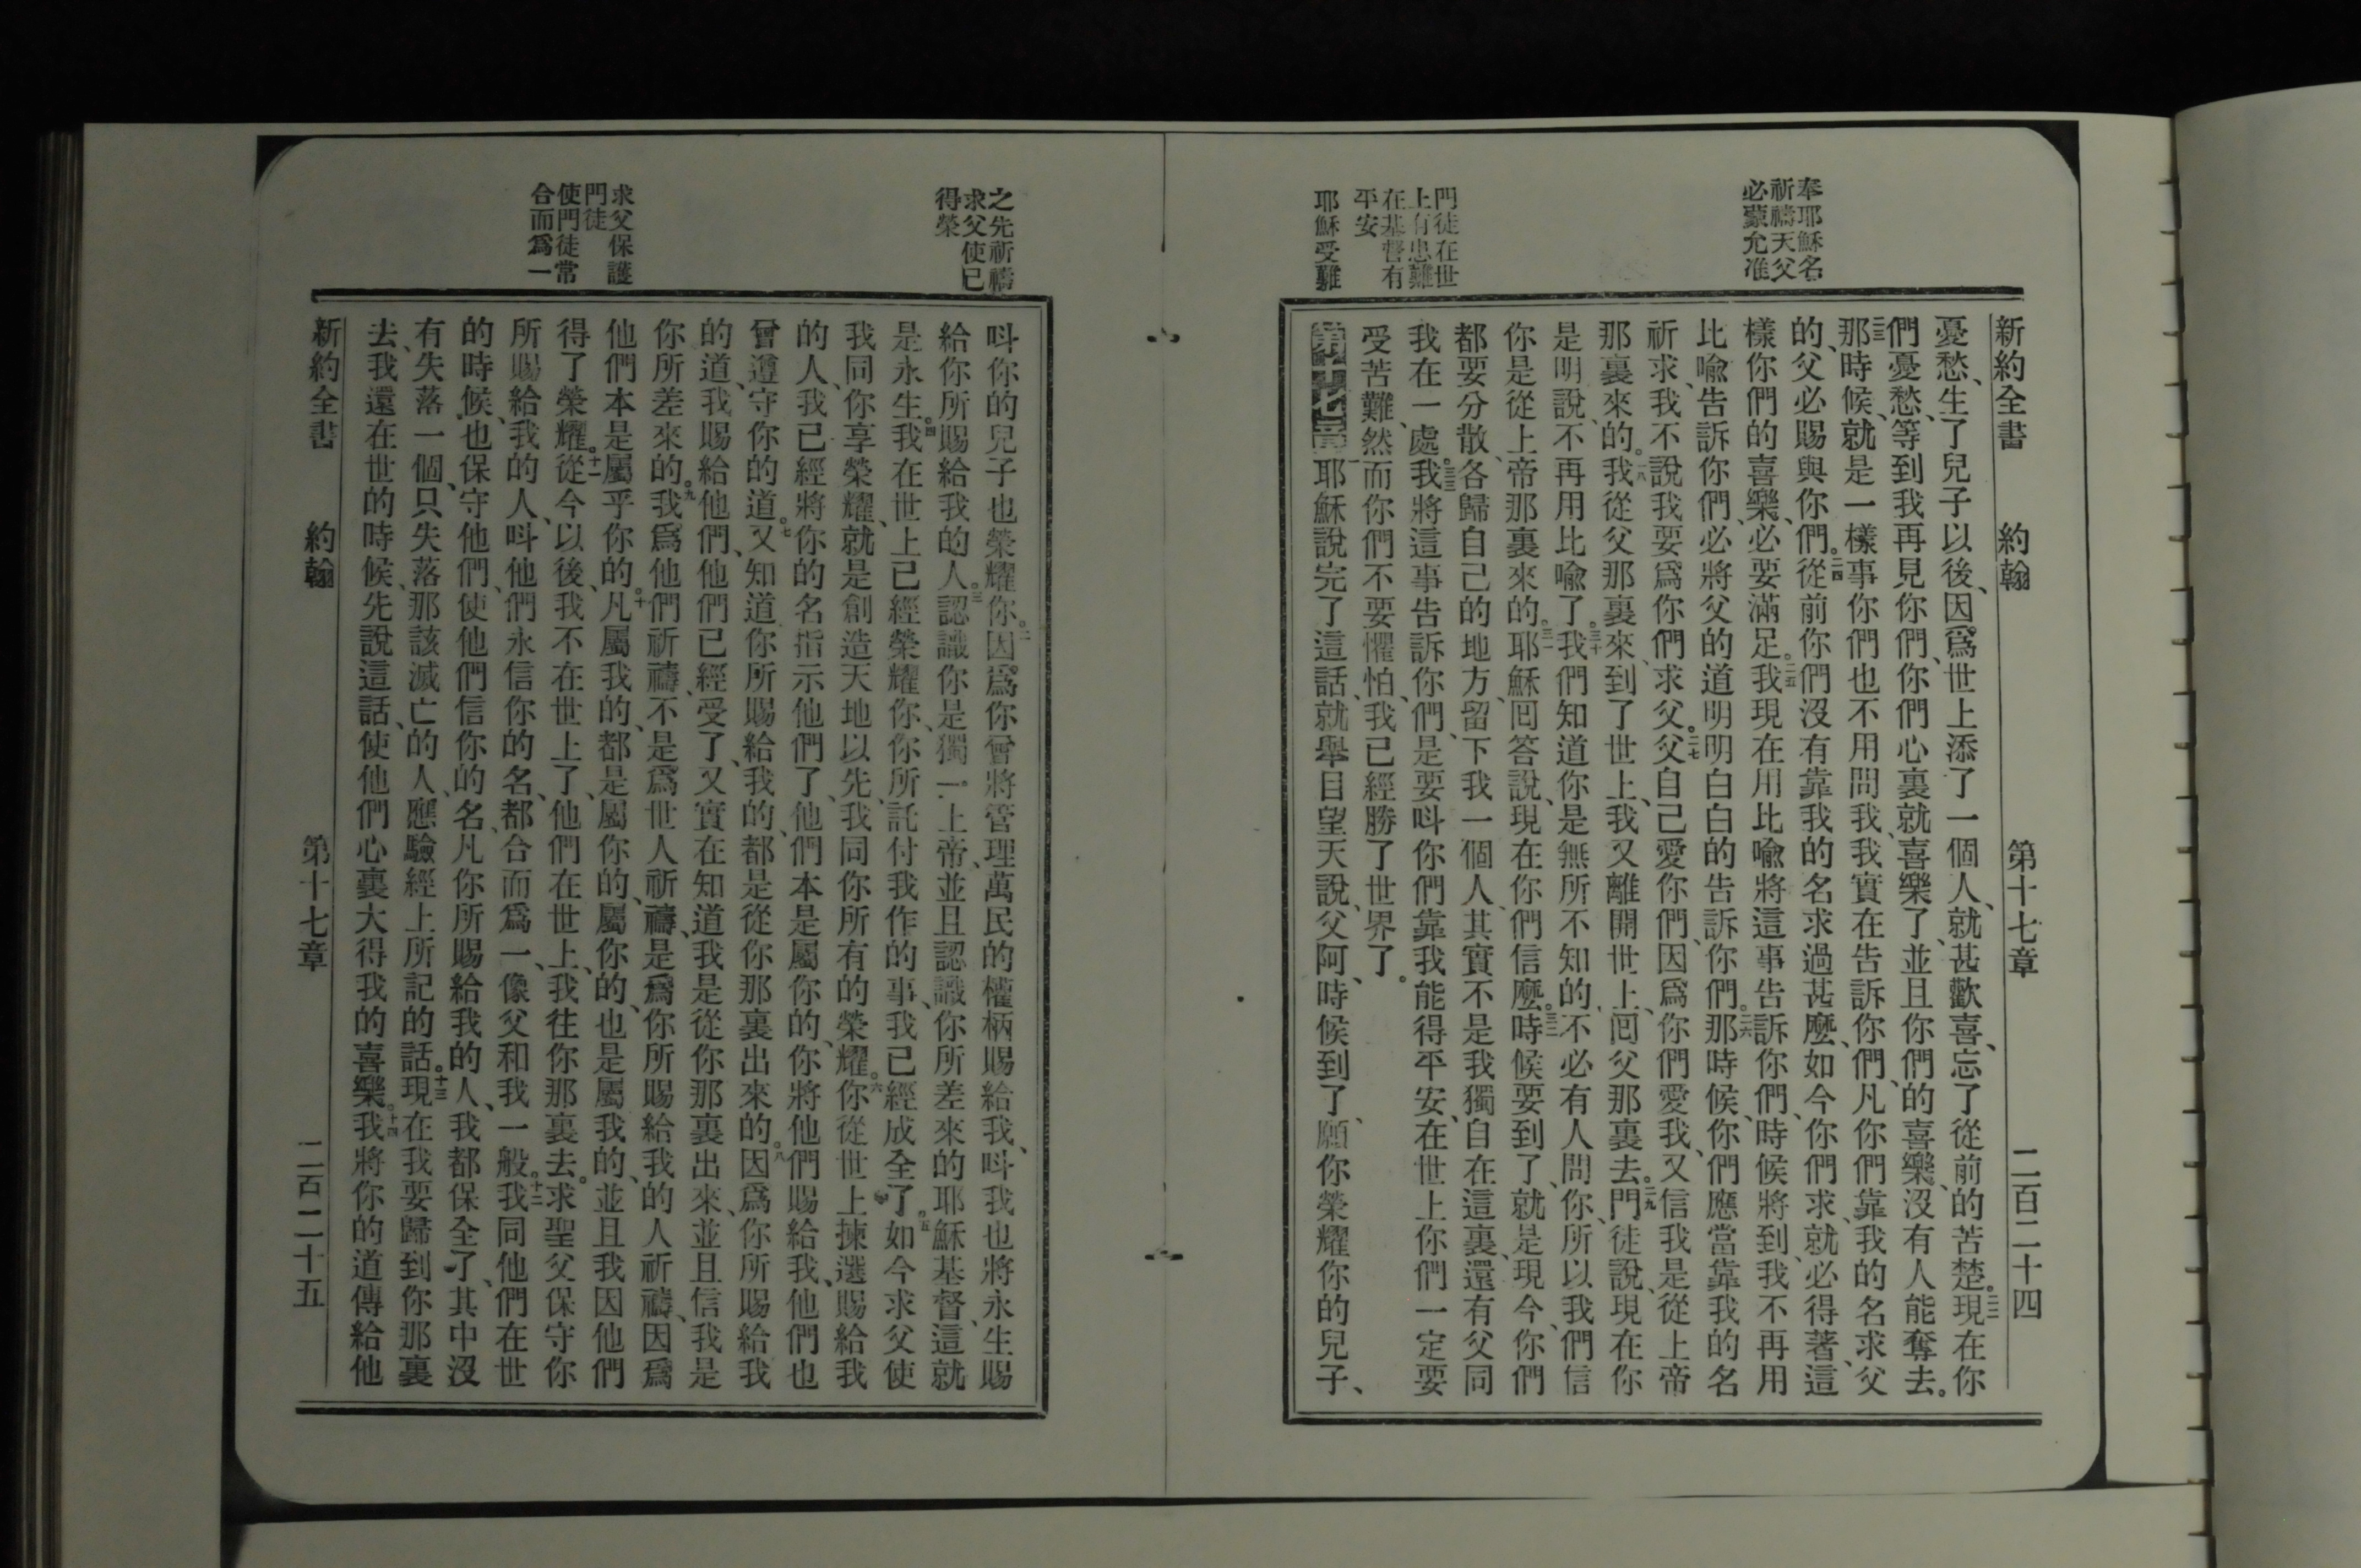 奉耶穌名
祈禱天父
必蒙允准
門徒在世
上有患難
在基督有
平安
耶穌受難
新約全書 約翰 第十七章 二百二十四
憂愁、生了兒子以後、因爲世上添了一個人、就甚歡喜、忘了從前的苦楚。二二現在你
們憂愁、等到我再見你們、你們心裏就喜樂了、並且你們的喜樂、沒有人能奪去。
二三那時候、就是一樣事你們也不用問我、我實在告訴你們、凡你們靠我的名求父
的、父必賜與你們。二四從前你們沒有靠我的名求過甚麼、如今你們求、就必得著、這
樣你們的喜樂、必要滿足。二五我現在用比喻將這事告訴你們、時候將到、我不再用
比喻告訴你們、必將父的道明明白白的告訴你們。二六那時候、你們應當靠我的名
祈求、我不說我要爲你們求父。二七父自己愛你們、因爲你們愛我、又信我是從上帝
那裏來的。二八我從父那裏來、到了世上、我又離開世上、囘父那裏去。二九門徒說、現在你
是明說、不再用比喻了。三十我們知道你是無所不知的、不必有人問你、所以我們信
你是從上帝那裏來的。三一耶穌囘答說、現在你們信麼。三二時候要到了、就是現今、你們
都要分散、各歸自己的地方、留下我一個人、其實不是我獨自在這裏、還有父同
我在一處。三三我將這事告訴你們、是要呌你們靠我能得平安、在世上你們一定要
受苦難、然而你們不要懼怕、我已經勝了世界了。
第十七章一耶穌說完了這話、就舉目望天說、父阿、時候到了、願你榮耀你的兒子、
之先祈禱
求父使已
得榮
求父保護
門徒
使門徒常
合而爲一
呌你的兒子也榮耀你。二因爲你曾將管理萬民的權柄賜給我、呌我也將永生賜
給你所賜給我的人。三認識你是獨一上帝、並且認識你所差來的耶穌基督、這就
是永生。四我在世上已經榮耀你、你所託付我作的事、我已經成全了。五如今求父使
我同你享榮耀、就是創造天地以先、我同你所有的榮耀。六你從世上揀選、賜給我
的人、我已經將你的名指示他們了、他們本是屬你的、你將他們賜給我、他們也
曾遵守你的道。七又知道你所賜給我的、都是從你那裏出來的。八因爲你所賜給我
的道、我賜給他們、他們已經受了、又實在知道我是從你那裏出來、並且信我是
你所差來的。九我爲他們祈禱、不是爲世人祈禱、是爲你所賜給我的人祈禱、因爲
他們本是屬乎你的。十凡屬我的、都是屬你的、屬你的、也是屬我的、並且我因他們
得了榮耀。十一從今以後、我不在世上了、他們在世上、我往你那裏去。求聖父保守你
所賜給我的人、呌他們永信你的名、都合而爲一、像父和我一般。十二我同他們在世
的時候、也保守他們、使他們信你的名、凡你所賜給我的人、我都保全了、其中沒
有失落一個、只失落那該滅亡的人、應驗經上所記的話。十三現在我要歸到你那裏
去、我還在世的時候、先說這話、使他們心裏大得我的喜樂。十四我將你的道傳給他
新約全書 約翰 第十七章 二百二十五